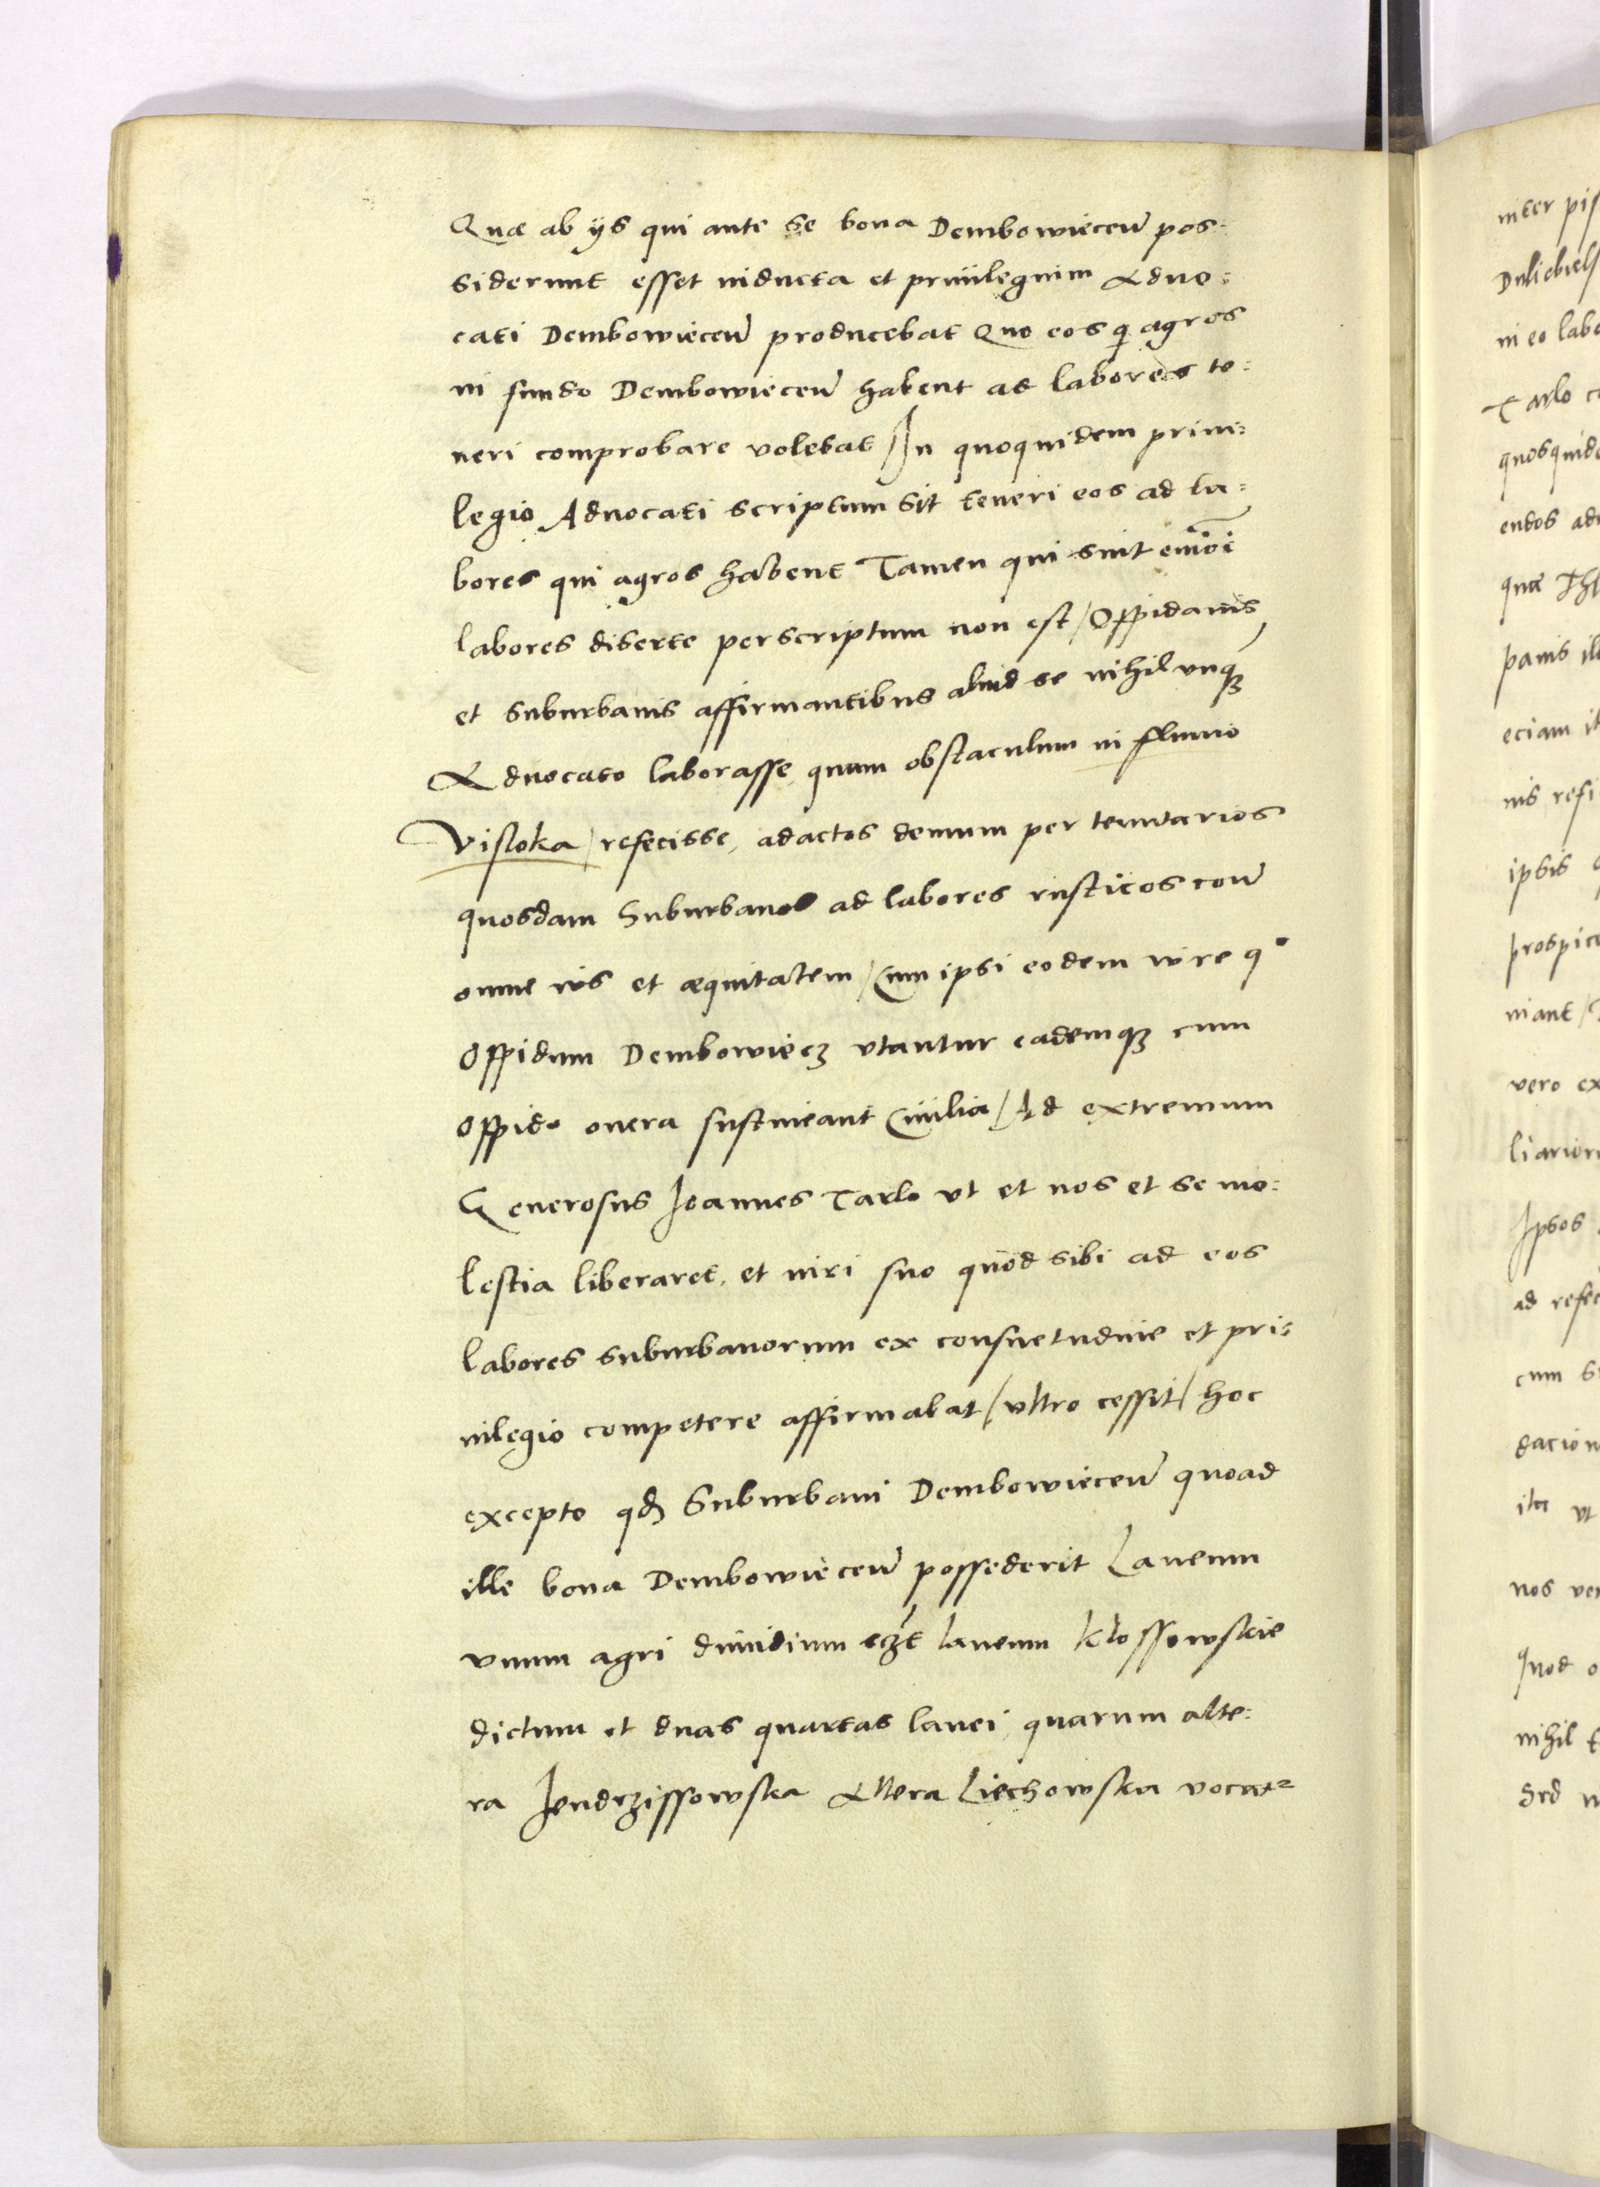 Quæ ab ijs qui ante se bona Dembowiecen̄ pos:
siderunt esset inducta et priuilegium Aduo:
cati Dembowiecen̄ producebat Quo eos q̨ agros
in fundo Dembowiecen̄ habent ad labores te:
neri comprobare volebat / In quoquidem priui:
legio Aduocati scriptum sit teneri eos ad la:
bores qui agros habent Tamen qui sint eiūōi
labores diserte perscriptum non est / Oppidanis
et Suburbanis affirmantibus aliud se nihil vnqȝ
Aduocato laborasse, quam obstaculum in fluuio
Visloka / refecisse, adactos demum per tenutarios
quosdam Suburbanos ad labores rusticos con̄
omne ius et æquitatem / Cum ipsi eodem iure q°
Oppidum Dembowiecz vtantur eademqȝ cum
Oppido onera sustineant Ciuilia / Ad extremum
Generosus Ioannes Tarlo vt et nos et se mo:
lestia liberaret, et iuri suo quod sibi ad eos
labores suburbanorum ex consuetudine et pri:
uilegio competere affirmabat / vltro cessit / hoc
excepto qđ Suburbani Dembowiecen̄ quoad
ille bona Dembowiecen̄ possederit Laneum
vnum agri dimidium laneum Klossowskie
dictum et duas quartas lanei, quarum alte:
ra Jendrzissowska Altera Liechowska vocat²